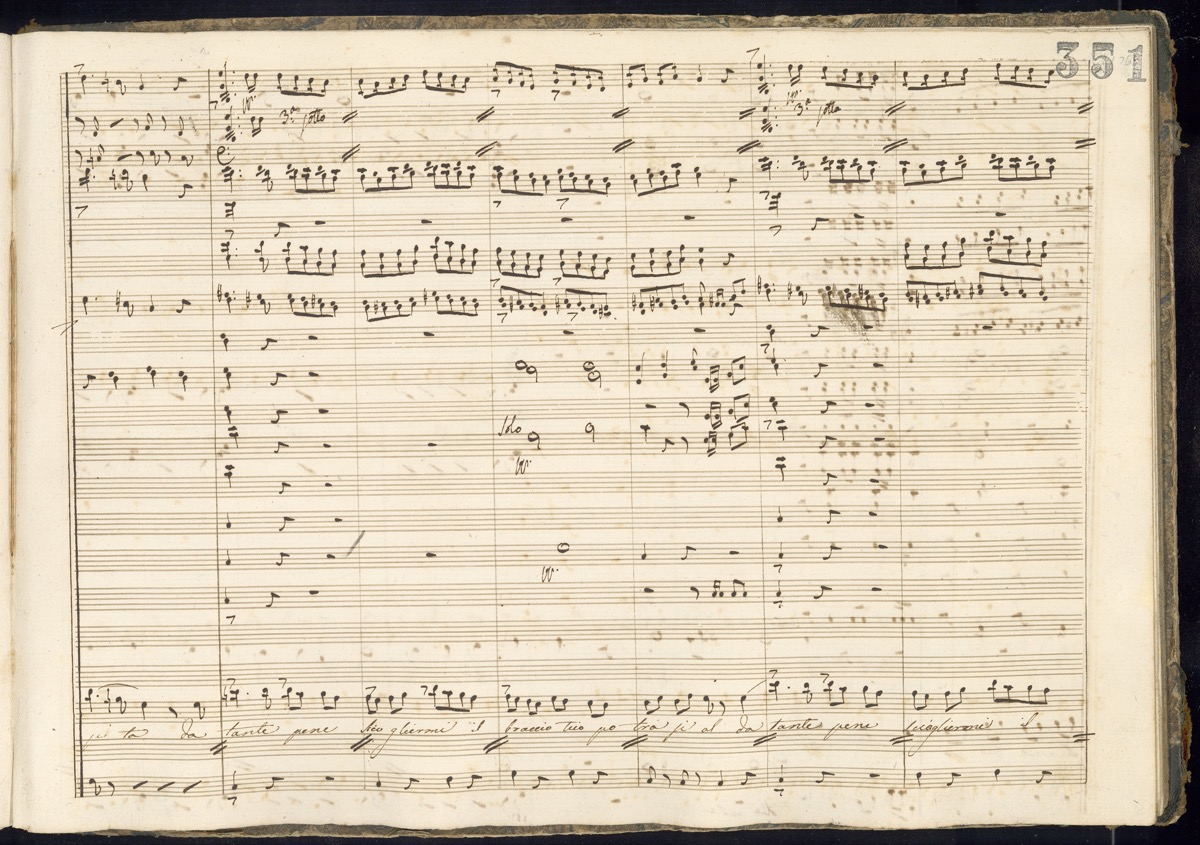 351
3ª sotto 3ª sotto
Solo
da tante pene sciogliermi il braccio tuo potrà da tante pene sciogliermi il